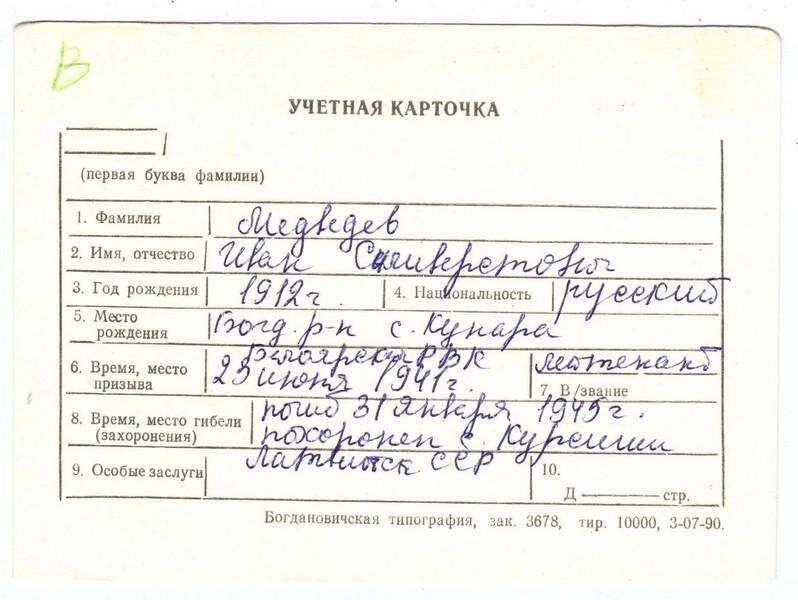 В
УЧЕТНАЯ КАРТОЧКА
(первая буква фамилии)
1. Фамилия Медведев
2. Имя, отчество Иван
3. Год рождения 1912 г. 4. Национальность русский
5. Место рождения Богд. р-н с. Кунара
6. Время, место призыва Белоярский РВК
23 июня 1941 г.
лейтенант
7. В/звание
8. Время, место гибели (захоронения) погиб 31 января 1945 г.
похоронен с. Курсиши
Латвийск. ССР
9. Особые заслуги
10.
Д ——— стр.
Богдановичская типография, зак. 3678, тир. 10000, 3-07-90.